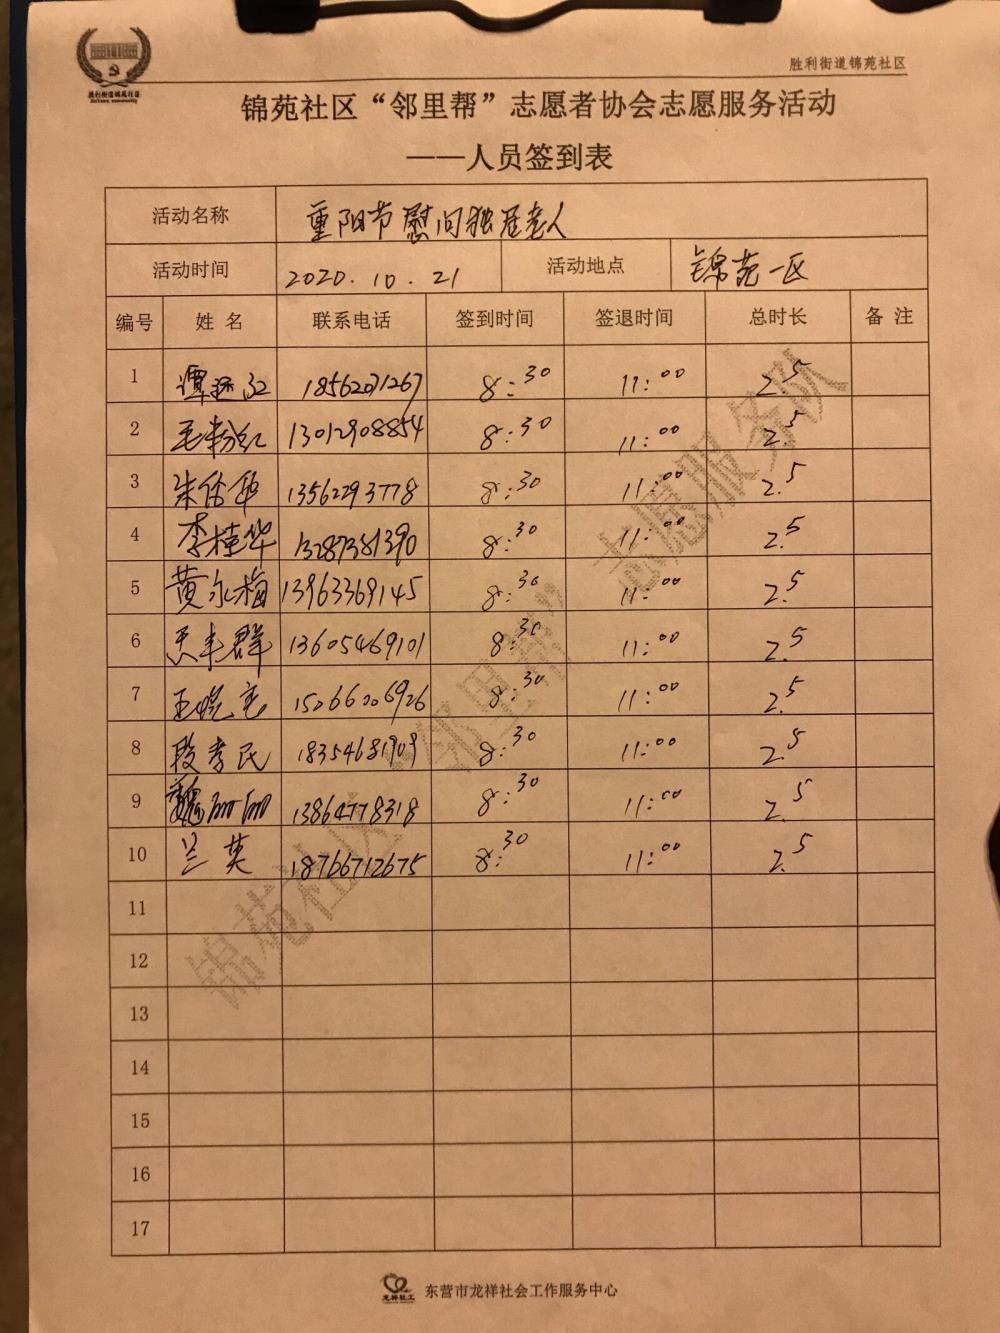 胜利街道锦苑社区
胜利街道锦苑社区
锦苑社区“邻里帮”志愿者协会志愿服务活动
——人员签到表
活动名称 重阳节慰问独居老人
活动时间 2020.10.21 活动地点 锦苑一区
编号 姓名 联系电话 签到时间 签退时间 总时长 备注
1 18562071267 8:30 11:00 2.5
2 毛粉红 13012908854 8:30 11:00 2.5
3 13562293778 8:30 11:00 2.5
4 李桂华 13287381390 8:30 11:00 2.5
5 黄永梅 13963369145 8:30 11:00 2.5
6 13605469101 8:30 11:00 2.5
7 王晓 15066006926 8:30 11:00 2.5
8 段孝民 18354681909 8:30 11:00 2.5
9 魏丽丽 13864778318 8:30 11:00 2.5
10 兰英 18766712675 8:30 11:00 2.5
11
12
13
14
15
16
17
锦苑社区“邻里帮”志愿服务队
龙祥社工 东营市龙祥社会工作服务中心